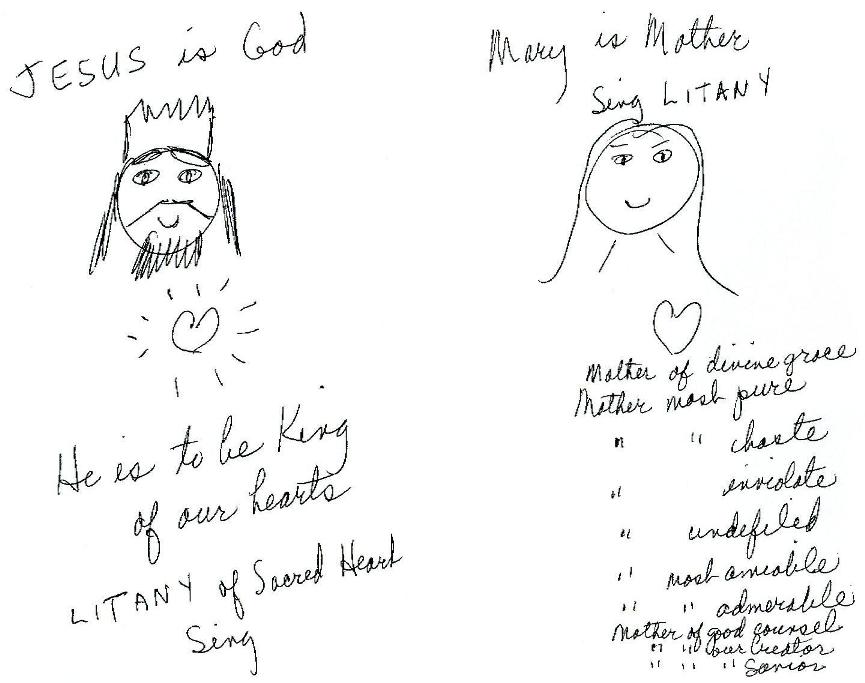 JESUS is God
He is to be King
of our hearts
LITANY of Sacred Heart
Sing
Mary is Mother
Sing LITANY
Mother of divine grace
Mother most pure
" " chaste
" enviolate
" undefiled
" most amiable
" " admerable
Mother of good counsel
" " our Creator
" " " Savior